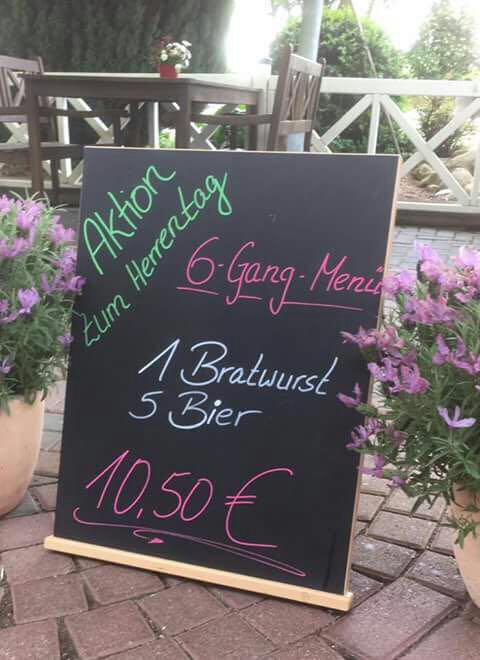 Aktion
zum Herrentag
6-Gang-Menü
1 Bratwurst
5 Bier
10,50 €